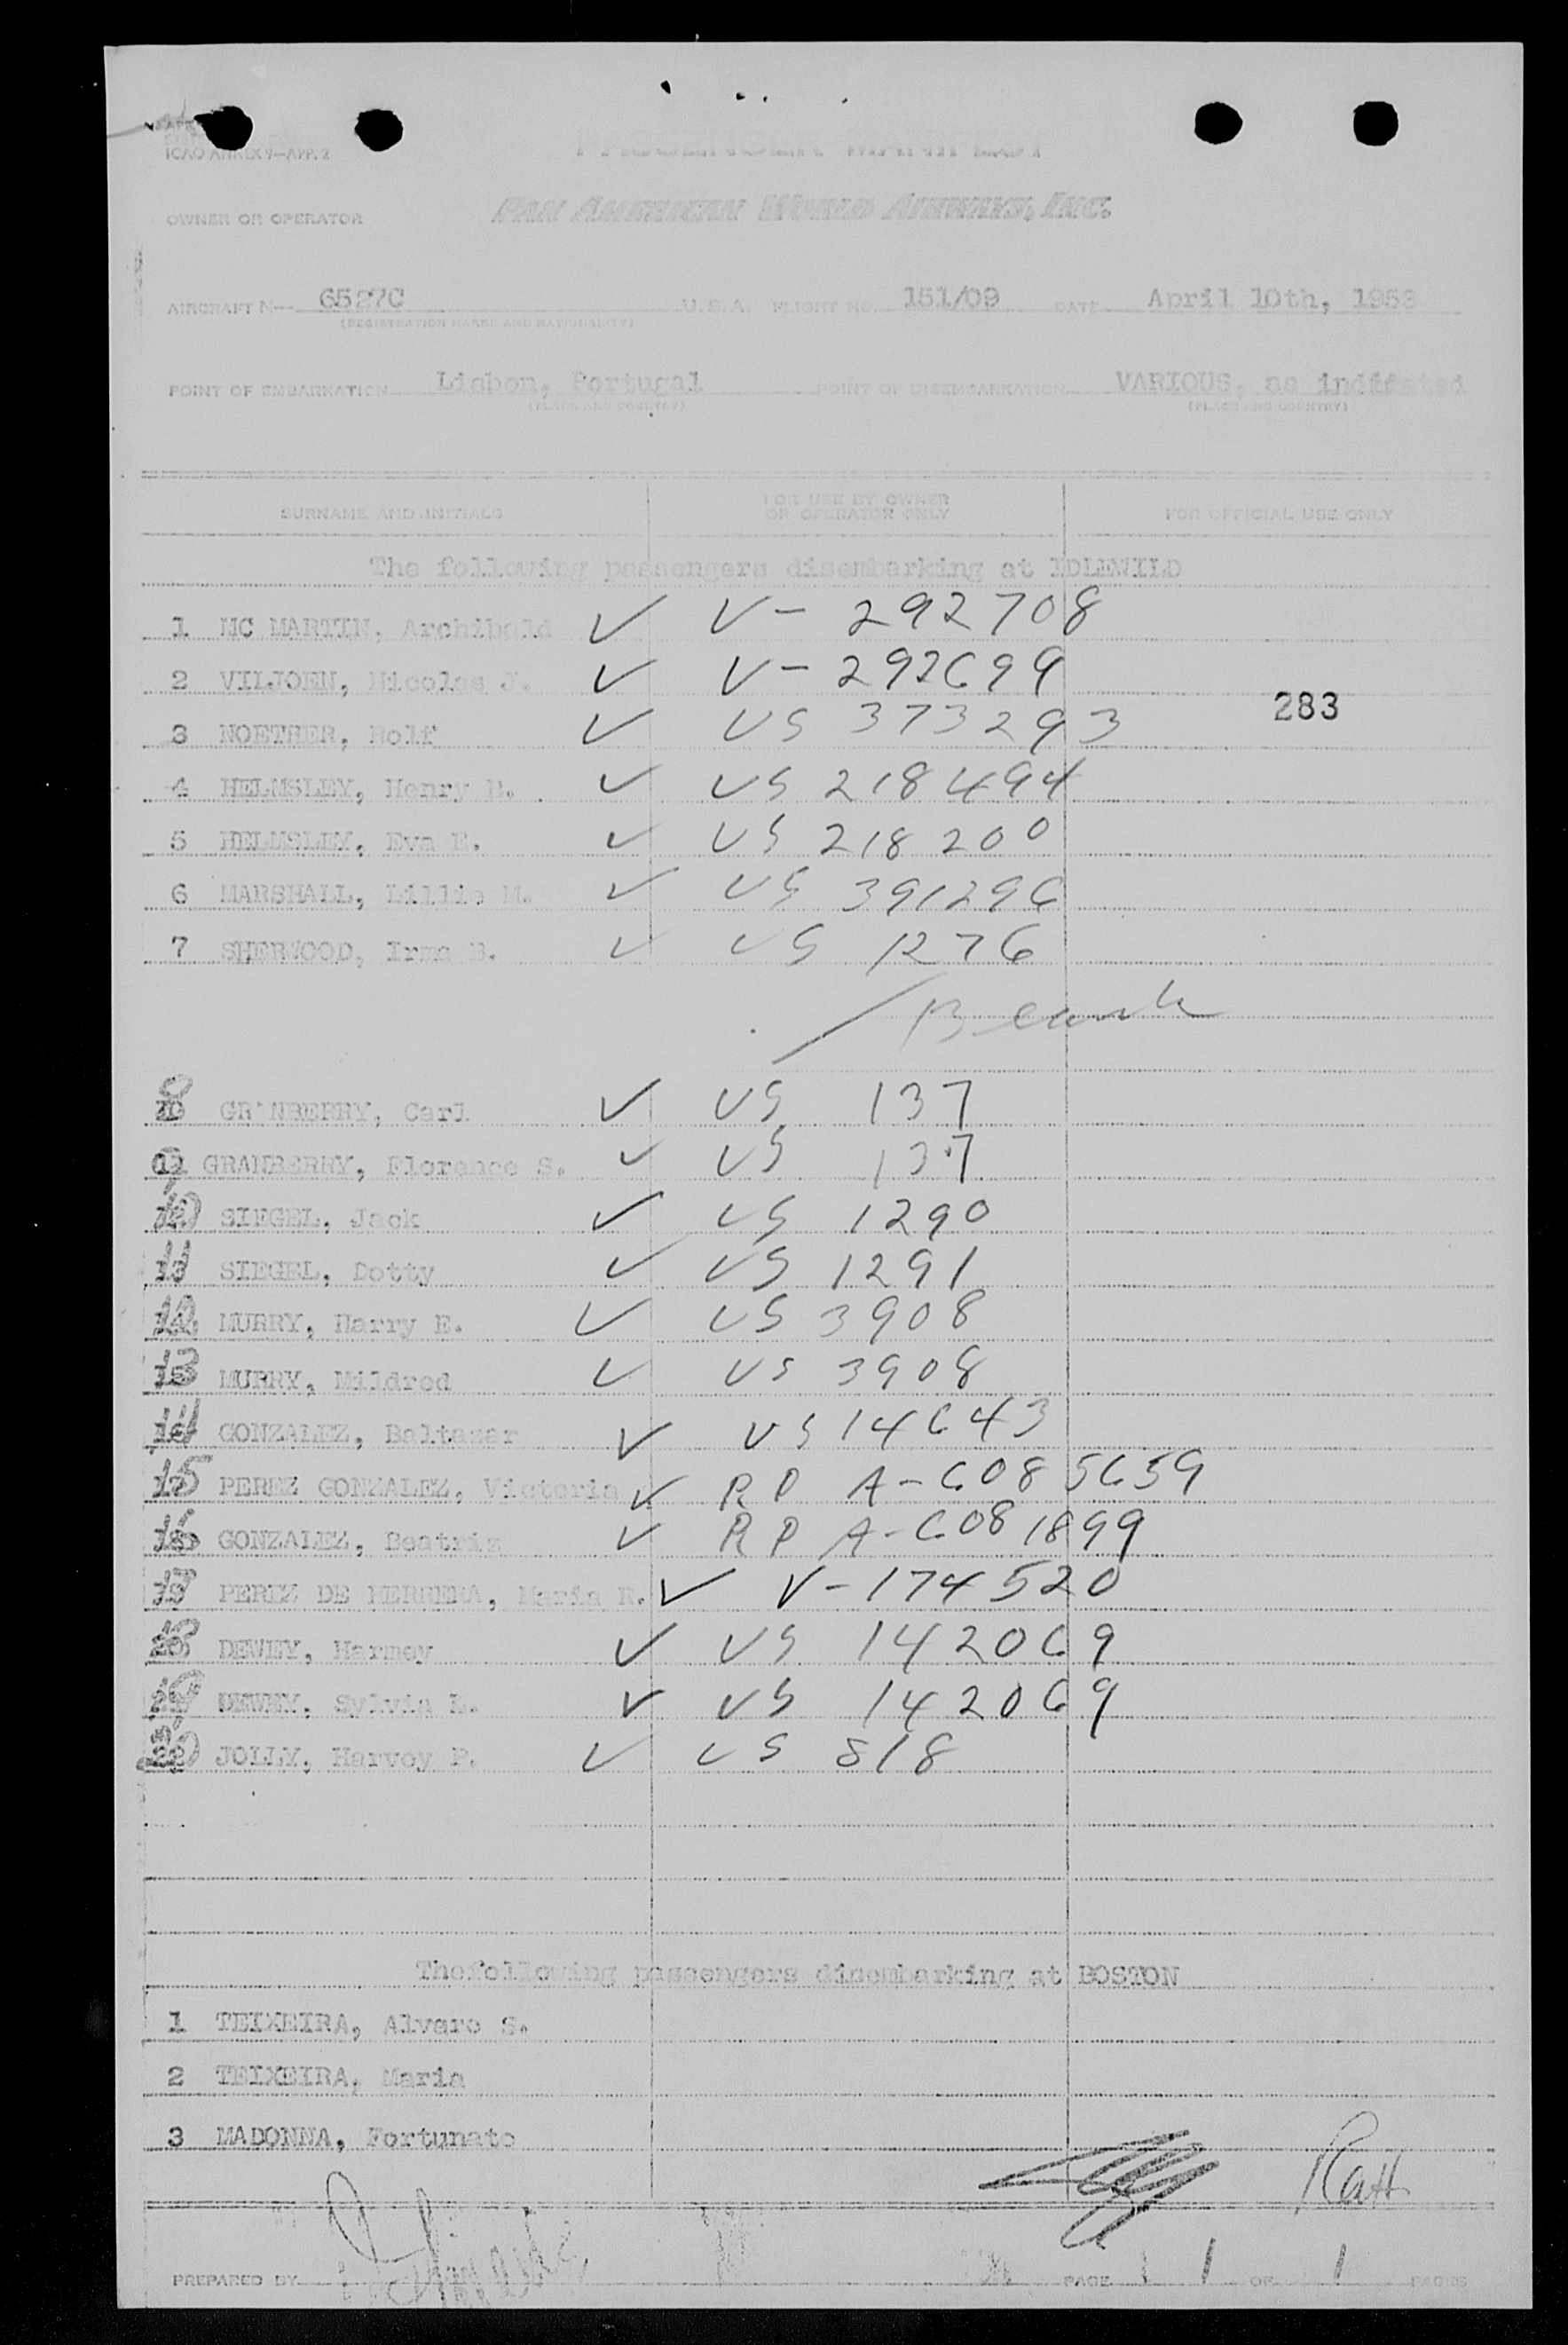 ICAO ANNEX 9—APP. 2
PASSENGER MANIFEST
OWNER OR OPERATOR PAN AMERICAN WORLD AIRWAYS, INC.
AIRCRAFT N-- 6527C U.S.A. FLIGHT NO. 151/09 DATE April 10th, 1953
(REGISTRATION MARKS AND NATIONALITY)
POINT OF EMBARKATION Lisbon, Portugal POINT OF DISEMBARKATION VARIOUS, as
(PLACE AND COUNTRY) (PLACE AND COUNTRY)
SURNAME AND INITIALS FOR USE BY OWNER OR OPERATOR ONLY FOR OFFICIAL USE ONLY
The following passengers disembarking at IDLEWILD
1 MC MARTIN, Archibald ✓ V- 292708
2 VILJOEN, Nicolas J. ✓ V- 292699
283
3 NOETHER, Rolf ✓ US 373293
4 HELMSLEY, Henry B. ✓ US 218494
5 HELMSLEY, Eva E. ✓ US 218200
6 MARSHALL, Lillie M. ✓ US 391296
7 SHERWOOD, Irma B. ✓ US 1276
/ Blank
8 GRANBERRY, Carl ✓ US 137
9 GRANBERRY, Florence S. ✓ US 137
10 SIEGEL, Jack ✓ US 1290
11 SIEGEL, Dotty ✓ US 1291
12 MURRY, Harry E. ✓ US 3908
13 MURRY, Mildred ✓ US 3908
14 GONZALEZ, Baltazar ✓ US 14643
15 PEREZ GONZALEZ, Victoria ✓ RP A-6085659
16 GONZALEZ, Beatriz ✓ RP A-6081899
17 PEREZ DE HERRERA, Maria R. ✓ V-174520
18 DEWEY, Harmey ✓ US 142069
19 DEWEY, Sylvia L. ✓ US 142069
20 JOLLY, Harvey P. ✓ US 518
The following passengers disembarking at BOSTON
1 TEIXEIRA, Alvaro S.
2 TEIXEIRA, Maria
3 MADONNA, Fortunato
PREPARED BY PAGE 1 OF 1 PAGES